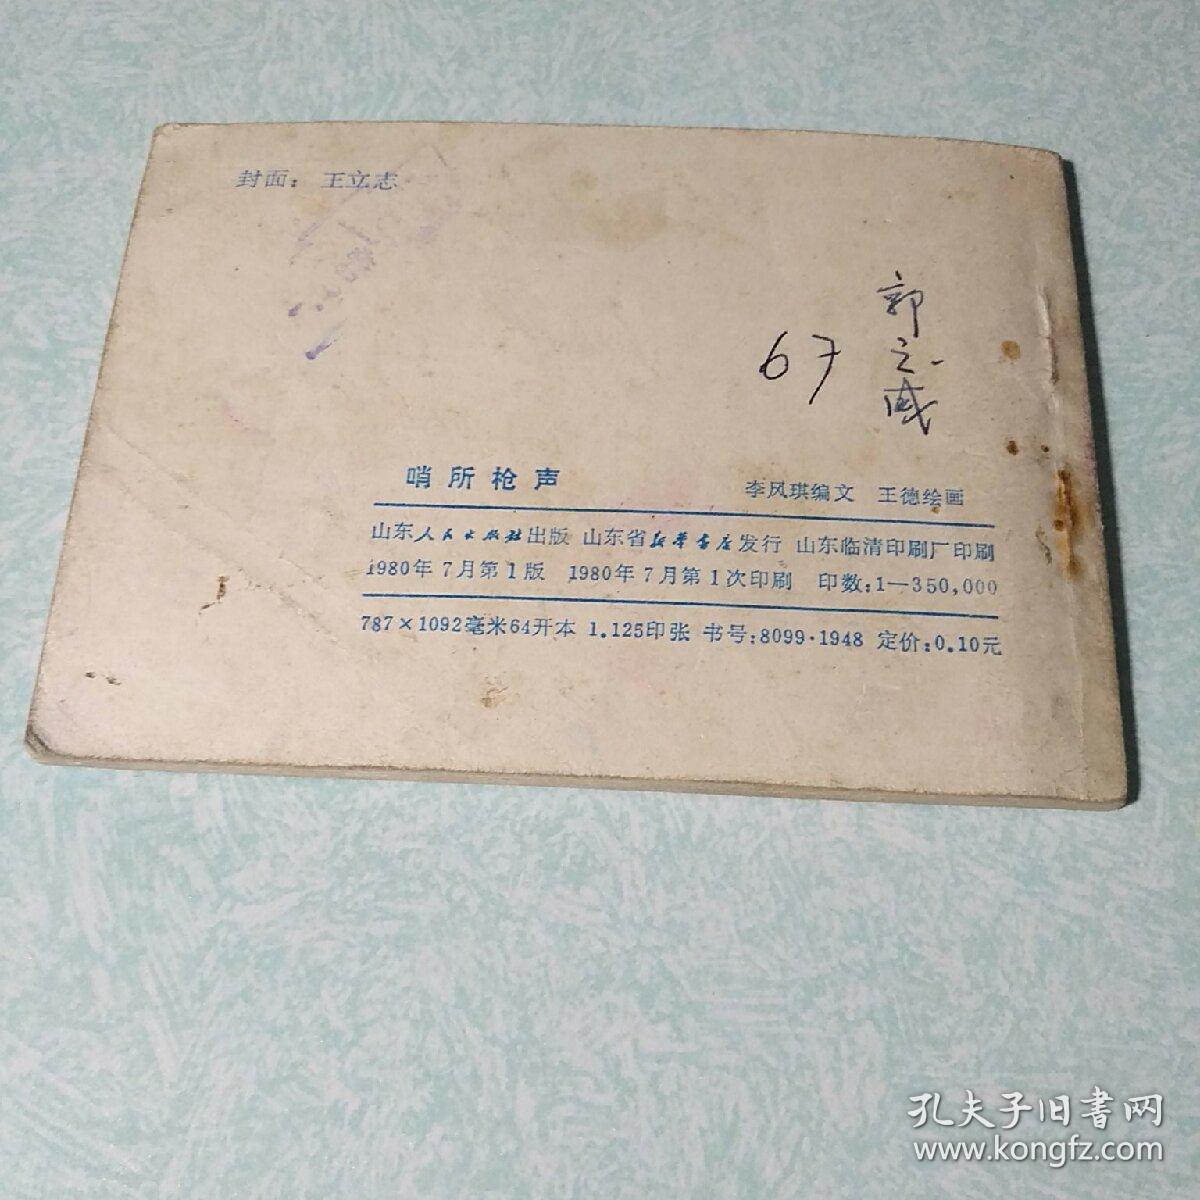 封面：王立志
郭立威
67
哨所枪声
李风琪编文 王德绘画
山东人民出版社出版 山东省新华书店发行 山东临清印刷厂印刷
1980年7月第1版 1980年7月第1次印刷 印数：1—350,000
787×1092毫米64开本 1.125印张 书号：8099·1948 定价：0.10元
孔夫子旧書网
www.kongfz.com